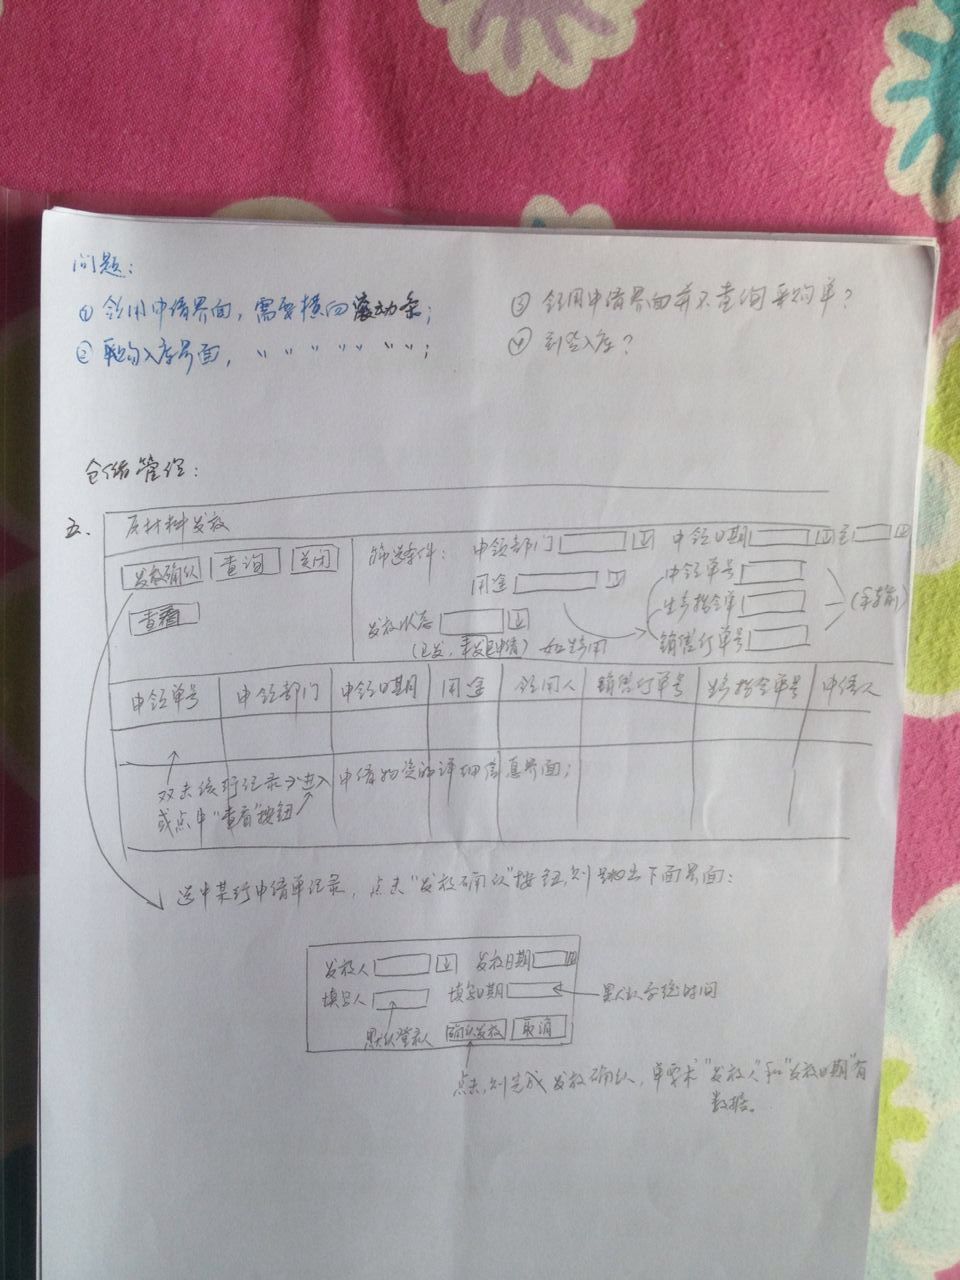 问题:
① 领用申请界面，需要横向滚动条;
② 采购入库界面，〃 〃 〃 〃 〃 〃 〃;
③ 领用申请界面并不查询采购单?
④ 到货入库?
仓储管理:
五、 原材料发放
发放确认 查询 关闭
查看
筛选条件: 申领部门 申领日期 至
用途 申领单号
生产指令单
发放状态 销售订单号
(已发, 未发已申请) 如生产用
申领单号 申领部门 申领日期 用途 领用人 销售订单号 生产指令单号 申请人
双击该行记录 进入 申请物资的详细信息界面;
或点中"查看"按钮
选中某行申请单记录，点击"发放确认"按钮,则弹出下面界面:
发放人 发放日期
填写人 填写日期 默认系统时间
默认登录人 确认发放 取消
点击,则完成发放确认，单要求"发放人"和"发放日期"有
数据。